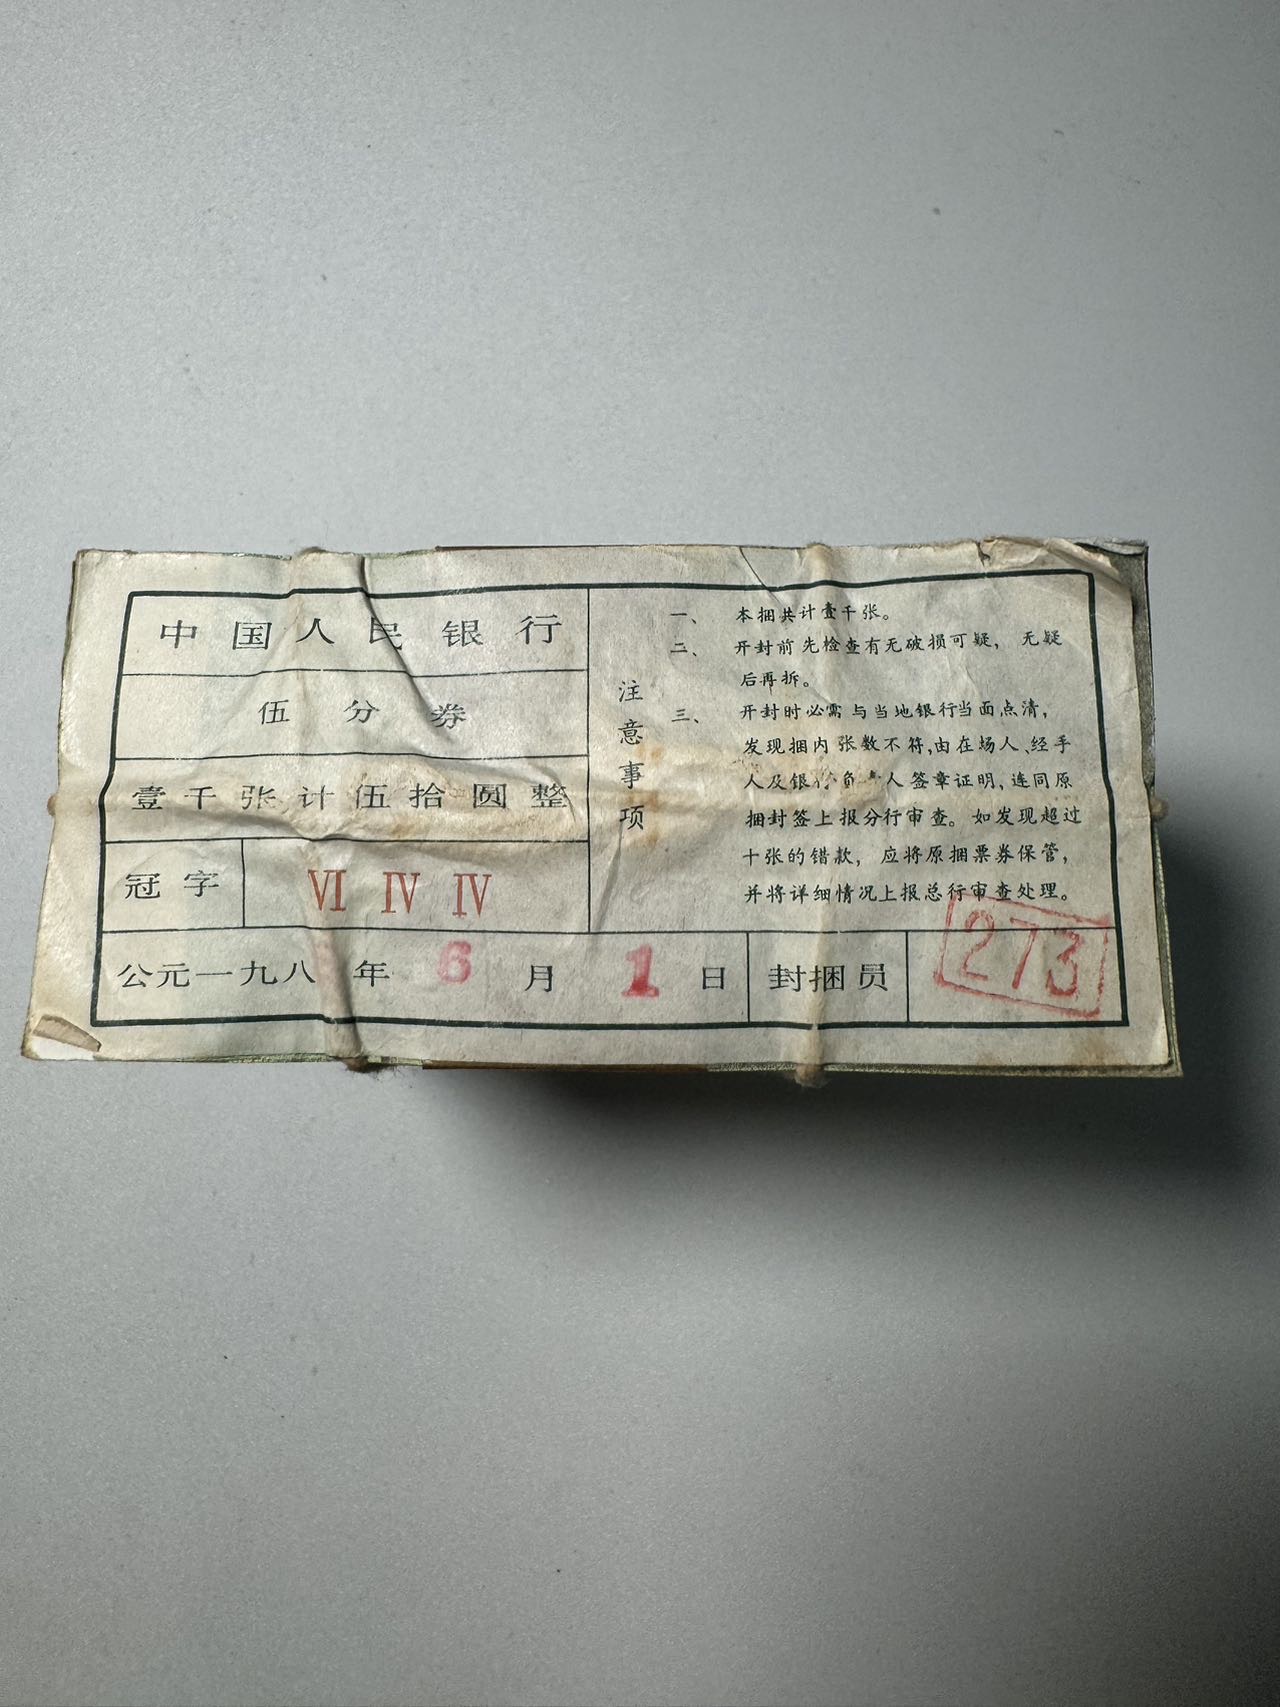 中国人民银行
伍分券
壹千张计伍拾圆整
冠字 Ⅵ Ⅳ Ⅳ
公元一九八 年 6 月 1 日 封捆员 273
注意事项
一、本捆共计壹千张。
二、开封前先检查有无破损可疑，无疑
后再拆。
三、开封时必需与当地银行当面点清，
发现捆内张数不符，由在场人、经手
人及银行负 人签章证明，连同原
捆封签上报分行审查。如发现超过
十张的错款，应将原捆票券保管，
并将详细情况上报总行审查处理。